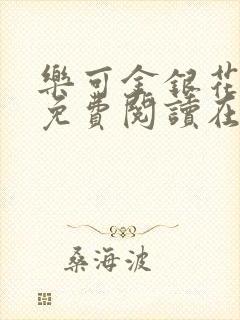 樂可金銀花
免費閱讀在
桑海波